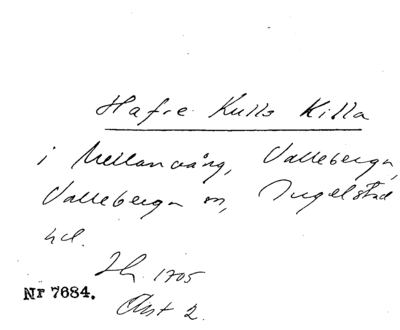 Hafre Kulls Killa
i Mellanvång, Valleberga,
Valleberga sn, Ingelstad
hd.
Jb. 1705
Nr 7684.
Akt 2.